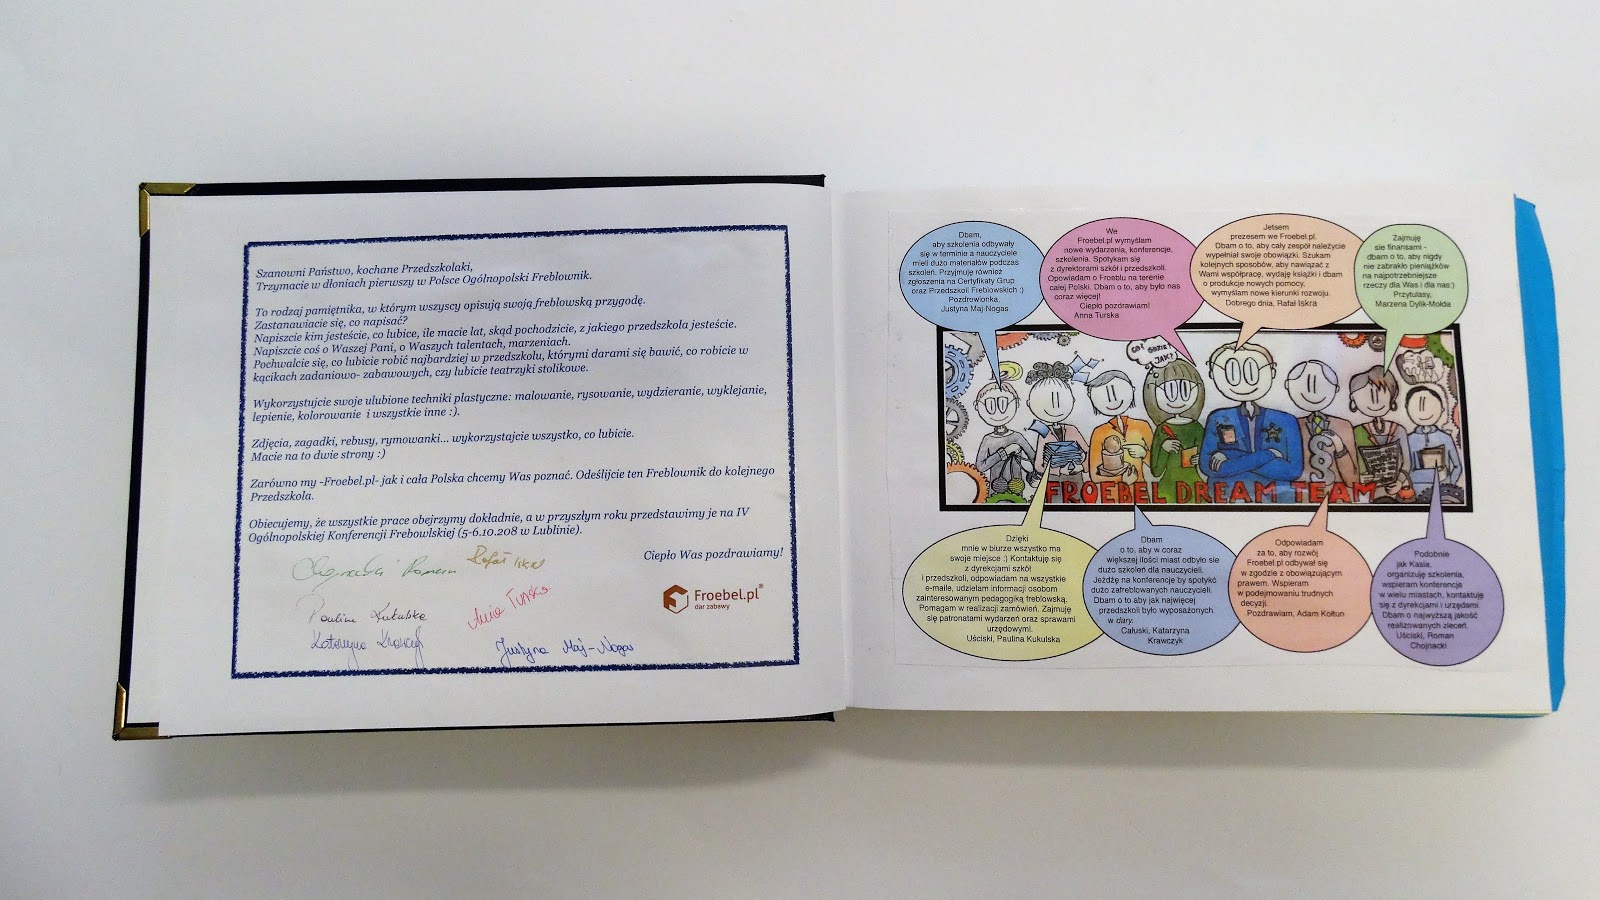 Szanowni Państwo, kochane Przedszkolaki,
Trzymacie w dłoniach pierwszy w Polsce Ogólnopolski Freblownik.
To rodzaj pamiętnika, w którym wszyscy opisują swoją freblowską przygodę.
Zastanawiacie się, co napisać?
Napiszcie kim jesteście, co lubice, ile macie lat, skąd pochodzicie, z jakiego przedszkola jesteście.
Napiszcie coś o Waszej Pani, o Waszych talentach, marzeniach.
Pochwalcie się, co lubicie robić najbardziej w przedszkolu, którymi darami się bawić, co robicie w
kącikach zadaniowo- zabawowych, czy lubicie teatrzyki stolikowe.
Wykorzystujcie swoje ulubione techniki plastyczne: malowanie, rysowanie, wydzieranie, wyklejanie,
lepienie, kolorowanie i wszystkie inne :).
Zdjęcia, zagadki, rebusy, rymowanki... wykorzystajcie wszystko, co lubicie.
Macie na to dwie strony :)
Zarówno my -Froebel.pl- jak i cała Polska chcemy Was poznać. Odeślijcie ten Freblownik do kolejnego
Przedszkola.
Obiecujemy, że wszystkie prace obejrzymy dokładnie, a w przyszłym roku przedstawimy je na IV
Ogólnopolskiej Konferencji Frebowlskiej (5-6.10.208 w Lublinie).
Ciepło Was pozdrawiamy!
Chojnacki Roman
Rafał Iskra
Paulina Kukulska
Anna Turska
Katarzyna Krawczyk
Justyna Maj-Nogas
Froebel.pl®
dar zabawy
Dbam,
aby szkolenia odbywały
się w terminie a nauczyciele
mieli dużo materiałów podczas
szkoleń. Przyjmuję również
zgłoszenia na Certyfikaty Grup
oraz Przedszkoli Freblowskich :)
Pozdrowionka,
Justyna Maj-Nogas
We
Froebel.pl wymyślam
nowe wydarzenia, konferencje,
szkolenia. Spotykam się
z dyrektorami szkół i przedszkoli.
Opowiadam o Froeblu na terenie
całej Polski. Dbam o to, aby było nas
coraz więcej!
Ciepło pozdrawiam!
Anna Turska
Jetsem
prezesem we Froebel.pl.
Dbam o to, aby cały zespół należycie
wypełniał swoje obowiązki. Szukam
kolejnych sposobów, aby nawiązać z
Wami współpracę, wydaję książki i dbam
o produkcje nowych pomocy,
wymyślam nowe kierunki rozwoju.
Dobrego dnia, Rafał Iskra
Zajmuję
sie finansami -
dbam o to, aby nigdy
nie zabrakło pieniążków
na najpotrzebniejsze
rzeczy dla Was i dla nas:)
Przytulasy,
Marzena Dylik-Mołda
CO?
GDZIE?
JAK?
FROEBEL DREAM TEAM
Dzięki
mnie w biurze wszystko ma
swoje miejsce :) Kontaktuję się
z dyrekcjami szkół
i przedszkoli, odpowiadam na wszystkie
e-maile, udzielam informacji osobom
zainteresowanym pedagogiką freblowską.
Pomagam w realizacji zamówień. Zajmuję
się patronatami wydarzeń oraz sprawami
urzędowymi.
Uściski, Paulina Kukulska
Dbam
o to, aby w coraz
większej ilości miast odbyło sie
dużo szkoleń dla nauczycieli.
Jeżdżę na konferencje by spotykć
dużo zafreblowanych nauczycieli.
Dbam o to aby jak najwięcej
przedszkoli było wyposażonych
w dary.
Całuski, Katarzyna
Krawczyk
Odpowiadam
za to, aby rozwój
Froebel.pl odbywał się
w zgodzie z obowiązującym
prawem. Wspieram
w podejmowaniu trudnych
decyzji.
Pozdrawiam, Adam Kołtun
Podobnie
jak Kasia,
organizuję szkolenia,
wspieram konferencje
w wielu miastach, kontaktuję
się z dyrekcjami i urzędami.
Dbam o najwyższą jakość
realizowanych zleceń.
Uściski, Roman
Chojnacki